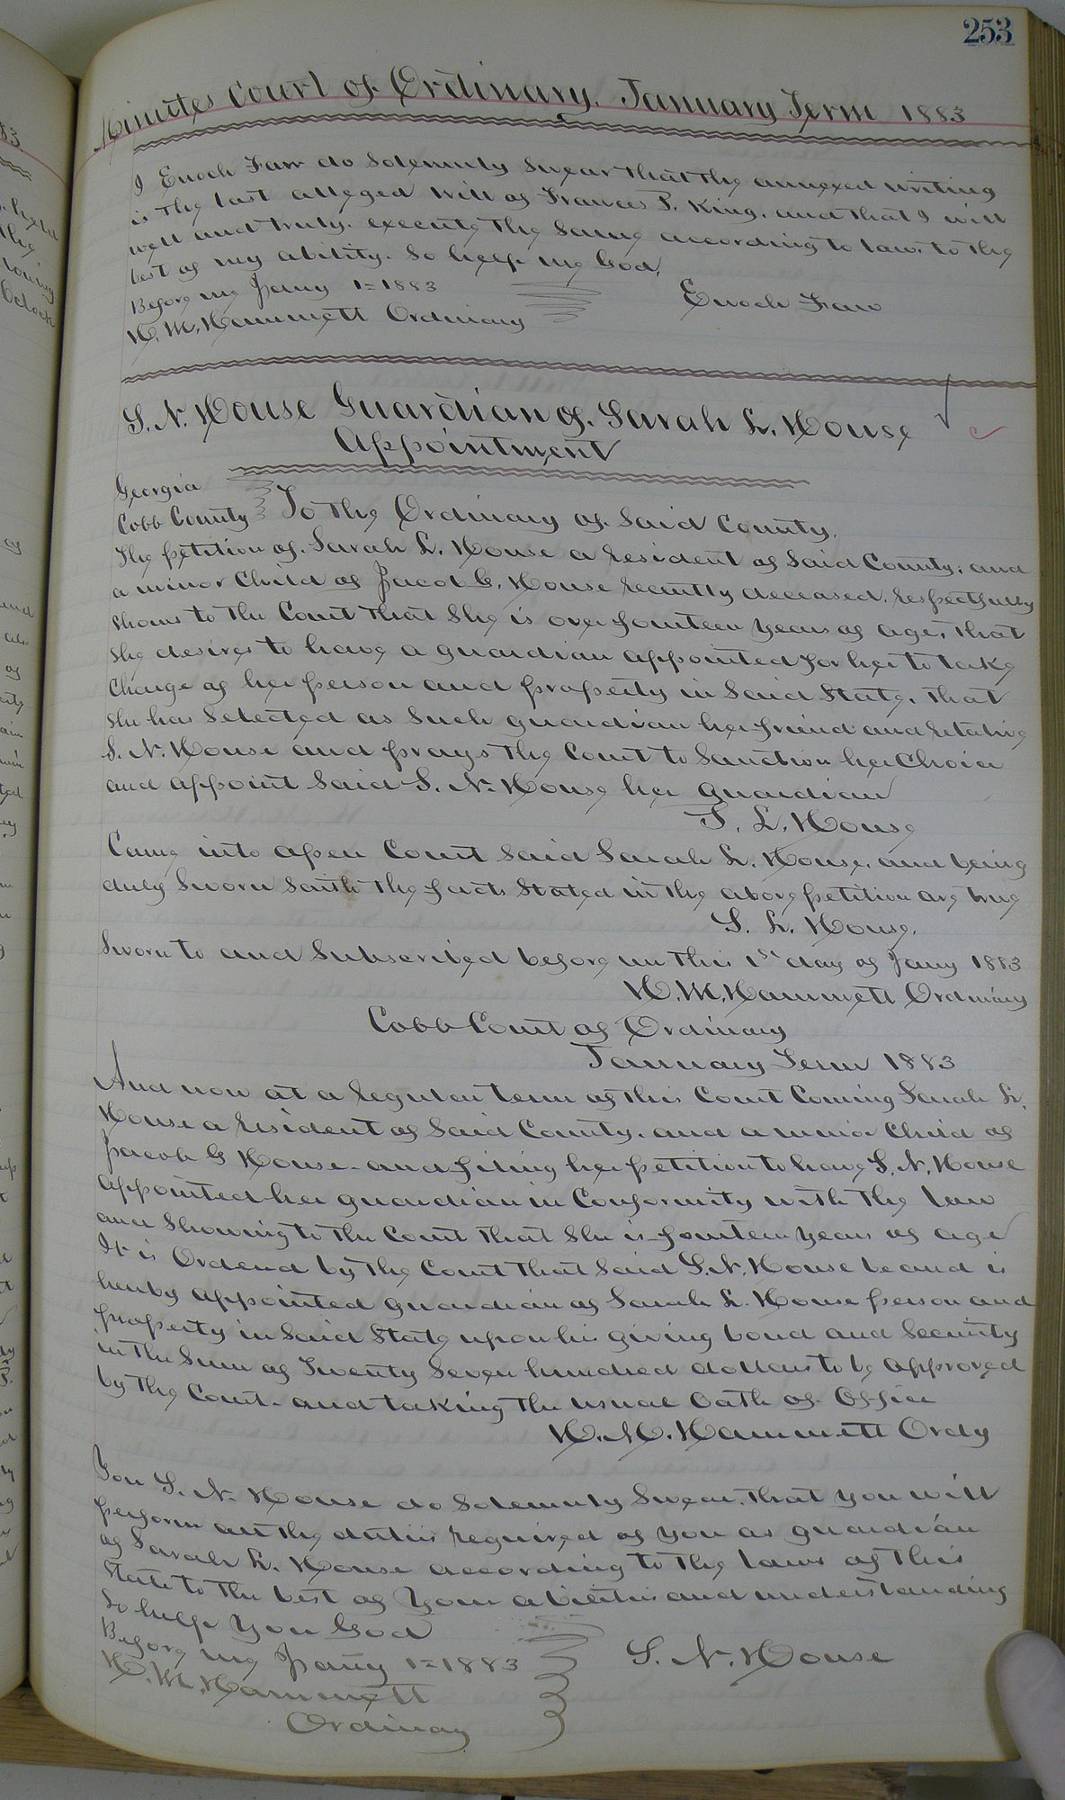 253
Minutes Court of Ordinary. January Term 1883
I Enoch Faw do Solemnly Swear that the annexed writing
is the last alleged will of Frances P. King. and that I will
well and truly. execute the Same according to law. to the
best of my ability. So help me God.
Before me Jany 1= 1883
Enoch Faw
H. M. Hammett Ordinary
S. N. House Guardian of. Sarah L. House
Appointment
Georgia
Cobb County To the Ordinary of Said County.
The petition of. Sarah L. House a Resident of Said County; and
a minor Child of Jacob G. House Recently deceased. Respectfully
Shows to the Court that She is over fourteen years of age, that
She desires to have a guardian appointed for her to take
Charge of her person and property in Said State. that
She has Selected as Such guardian her friend and Relative
S. N. House and prays the Court to Sanction her Choice
and appoint Said S. N. House her guardian
S. L. House
Came into open Court Said Sarah L. House. and being
duly Sworn Saith the facts Stated in the above petition are true
S. L. House.
Sworn to and Subscribed before me this 1st day of Jany 1883
H. M. Hammett Ordinary
Cobb Court of Ordinary
January Term 1883
And now at a Regular term of this Court Coming Sarah L.
House a Resident of Said County. and a minor Child of
Jacob G House - and filing her petition to have S. N. House
appointed her guardian in Conformity with the law
and Showing to the Court that She is fourteen years of age
It is Ordered by the Court that Said S. N. House be and is
hereby appointed guardian of Sarah L. House person and
property in Said State upon his giving bond and Security
in the Sum of Twenty Seven hundred dollars to be approved
by the Court - and taking the usual Oath of Office
H. M. Hammett Ordy
You S. N. House do Solemnly Swear. that you will
perform all the duties required of you as guardian
of Sarah L. House according to the laws of this
State to the best of your abilities and understanding
So help You God
Before me Jany 1= 1883
S. N. House
H. M. Hammett
Ordinary